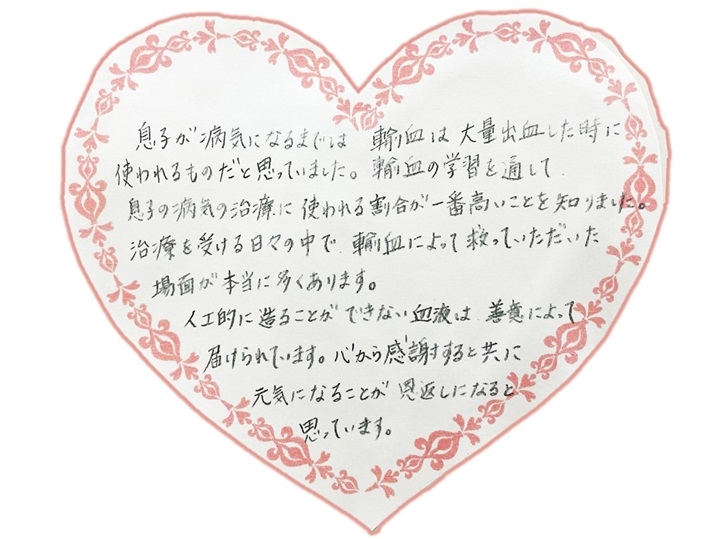 息子が病気になるまでは 輸血は大量出血した時に
使われるものだと思っていました。輸血の学習を通して、
息子の病気の治療に使われる割合が一番高いことを知りました。
治療を受ける日々の中で、輸血によって救っていただいた
場面が本当に多くあります。
人工的に造ることができない血液は、善意によって
届けられています。心から感謝すると共に
元気になることが恩返しになると
思っています。